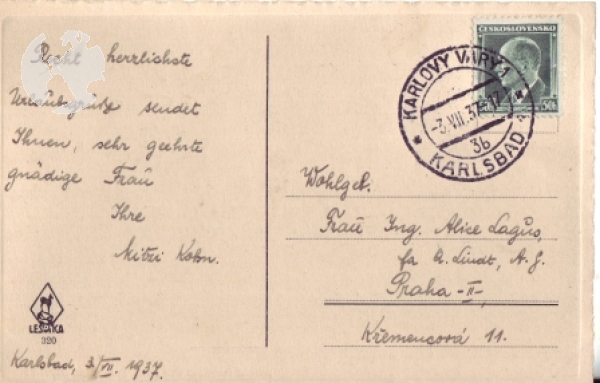 Recht herzlichste
Urlaubsgrüße sendet
Ihnen, sehr geehrte
gnädige Frau
Ihre
Mitzi Kohn.
LESETKA
320
Karlsbad, 3/VII. 1937.
ČESKOSLOVENSKO
50h
KARLOVY VARY 1
-3.VII.37
3b
KARLSBAD
Wohlgeb.
Frau Ing. Alice Lagus,
fa A. Lindt, A. G.
Praha -II-,
Křemencová 11.